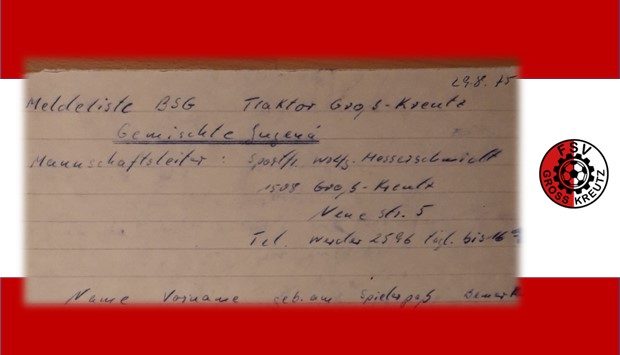 29.8.75
Meldeliste BSG Traktor Groß-Kreutz
Gemischte Jugend
Mannschaftsleiter: Sportfr. Wolfg. Messerschmidt
1509 Groß-Kreutz
Neue Str. 5
Tel. Werder 2596 tägl. bis 16
Name Vorname geb. am Spielerpaß Bemerk
FSV
GROSS KREUTZ